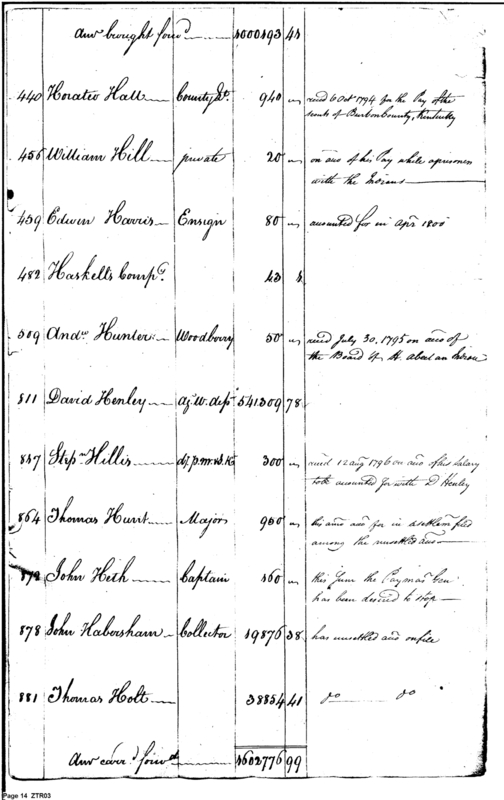 Amt brought forwd 4000493 44
440 Horatio Hall County Lt. 940 " recd 6 Oct 1794 for the Pay of the
scouts of Burbon County, Kentucky
456 William Hill private 20 " on acco of his Pay while a prisoner
with the Indians
459 Edwin Harris Ensign 80 " accounted for in Apr 1800
482 Haskell's Compy. 43
509 Andw Hunter Woodberry 50 " recd July 30. 1795 on acco of
the Board of H. Abert an Indian
811 David Henley 541309 78
847 Stepn Hillis 300 " recd 12 aug 1796 on acco of his Salary
to be accounted for with D Henley
864 Thomas Hunt Majors 950 " this amo acco for in a settlem filed
among the unsettled accos
872 John Heth Captain 160 " this Sum the Paymas Gen
has been desired to stop
878 John Habersham Collector 19876 38 has unsettled accos on file
881 Thomas Holt 38854 41 do do
Amt carrd forwd 4602776 99
Page 14 ZTR03